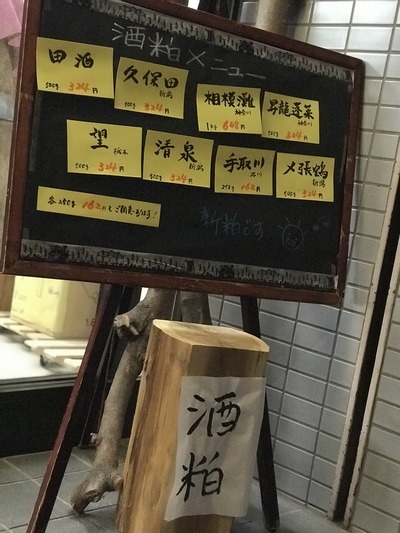 酒粕メニュー
田酒
500g 324円
久保田
新潟
500g 324円
相模灘
神奈川
1kg 648円
昇龍蓬莱
神奈川
500g 324円
望
栃木
500g 324円
清泉
新潟
500g 324円
手取川
石川
250g 162円
〆張鶴
新潟
500g 324円
各250g 162円でもご用意出来ます!
新粕です
酒粕